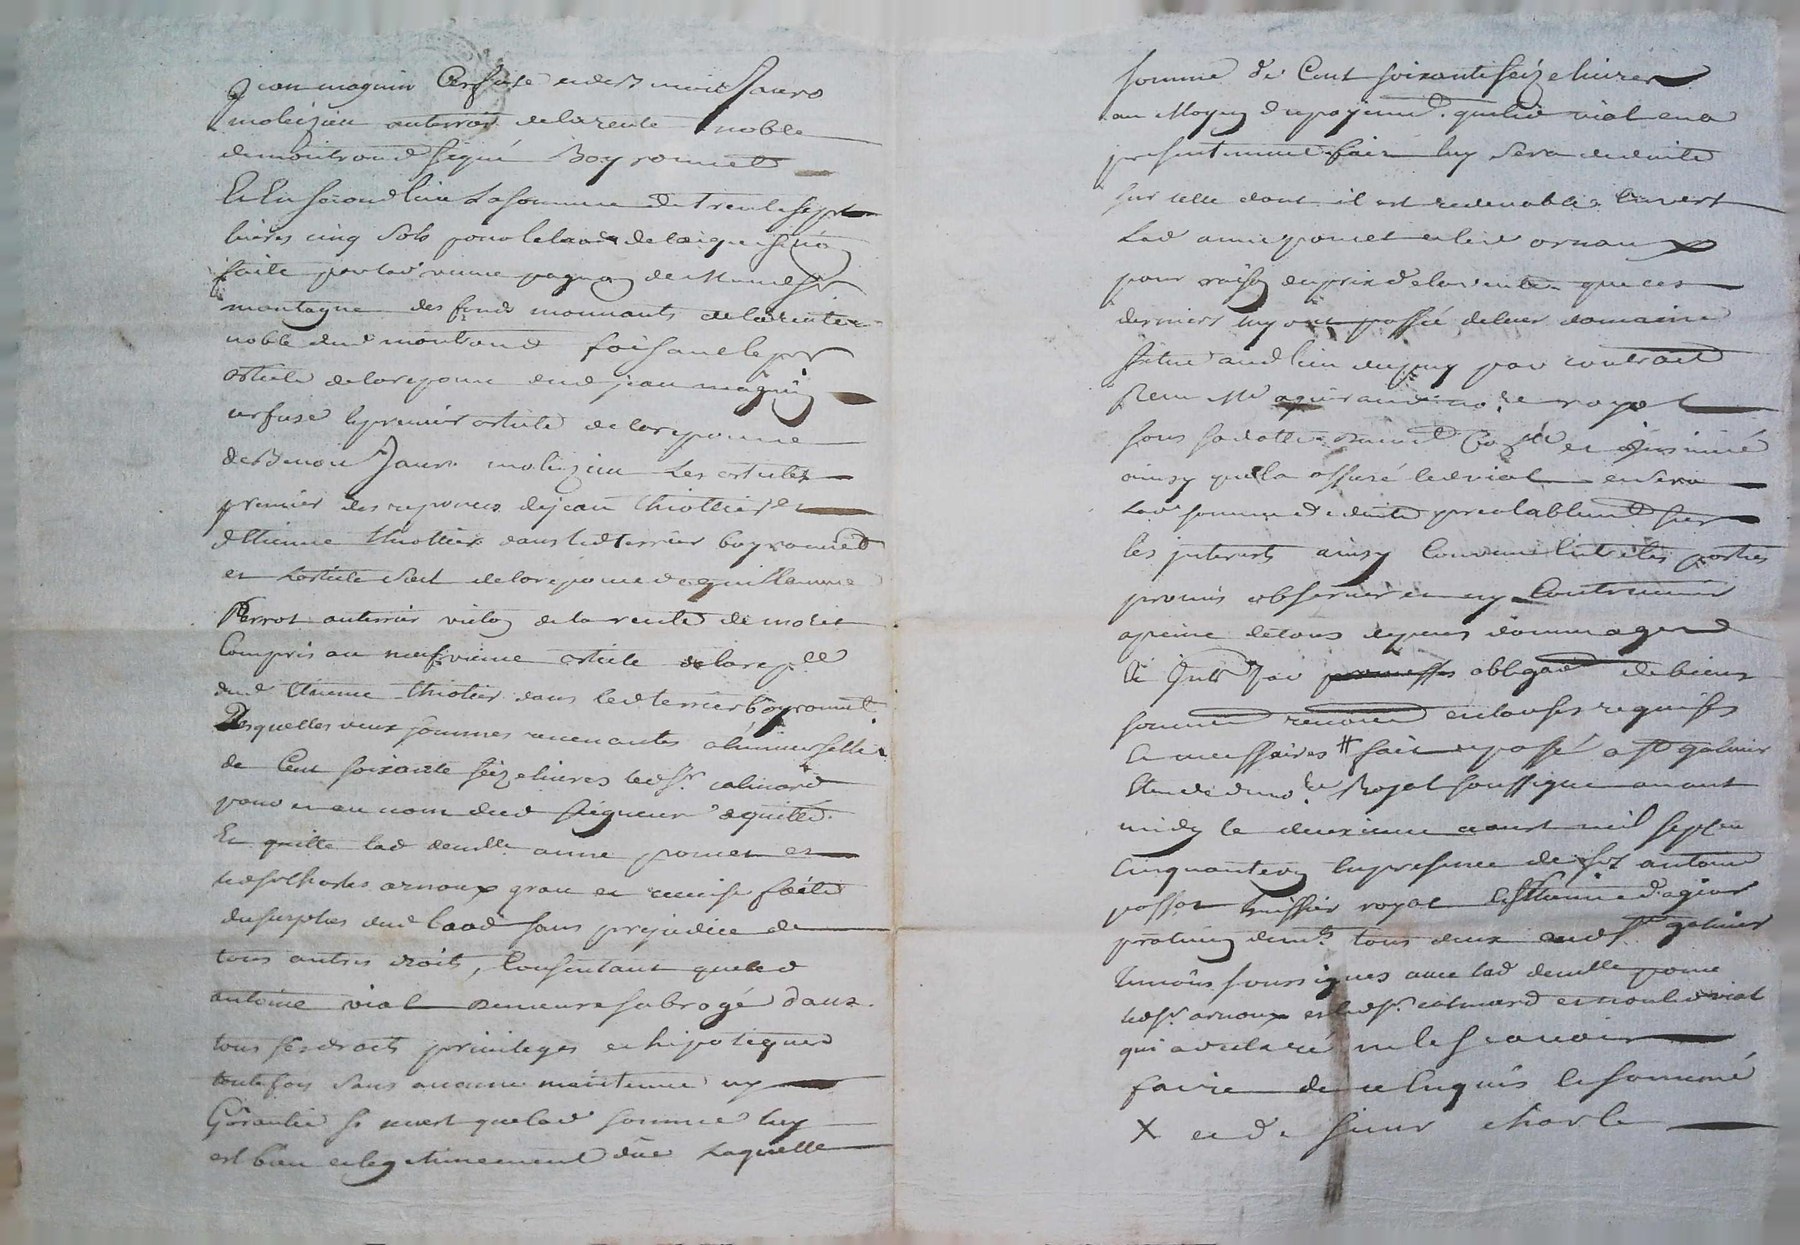 jean magnin Cerfuse et de Benoit Jauro
molézieu au terrier de la rente noble
de montrond signé Boyronnet
Et En second lieu La somme de Trente sept
livres cinq sols pour le laod de l'aiquisition
faite par lad veuve pagnon de
montagne des fonds mouvants de la rente
noble dud montrond faisant le per
article de la reponce dud jean magnin
cerfuse le premier article de la reponce
de Benoit Jauro molezieu Les articles
premier des reponces de jean thiollier et
d'Etienne thiollier dans led terrier boyronnet
et l'article sect de la reponce de guillaume
Perrot au terrier violon de la rente de
Compris au neufvieme article de la rep.ce
dud Etienne thiolier dans led terrier boyronnet.
Desquelles deux sommes revenantes a
de Cent soixante seize livres led Sr. calmard
pour et au nom dud seigneur
Et quitte lad demlle anne pomet et
led Sr charles arnoux grace et remise faite
du surplus dud laod sans prejudice de
tous autres droits, Consentant que led
antoine vial demeure subrogé dans
tous ses droits privileges et hipoteques
toutefois sans aucune maintenue ny
Garantie si n'est que lad somme luy
est bien et legitimement düe Laquelle
somme de Cent soixante seize livres
au Moyen du payement que led vial en a
presentement fait luy sera deduite
sur celle dont il est redevable Envers
Lad anne pomet et led arnoux
pour raison du prix de la vente que ces
derniers luy ont passée de leur domaine
situé aud lieu du puy par contract
Receu Me no.re royal
sous sa datte et insinué
ainsy que l'a assuré led vial et sera
Lad somme deduite prealablement sur
les jnterests ainsy Convenu Entre les parties
promis observer et ny Contrevenir
a peine de tous depens dommages
et Jntts par promesses obligaon de biens
soumon renonon et clauses requises
et necessaires # fait et passé a St galmier
Etude du no.re Royal soussigné avant
midy le deuxieme aoust mil sept cent
Cinquante En presence de Sr antoine
passot huissier royal et Etienne dagier
praticien dem.t tous deux aud St galmier
temoins soussignes avec lad demlle pomet
led Sr. arnoux et led Sr. calmard et non led vial
qui a declaré ne le scavoir
faire de ce Enquis et sommé
X et de sieur charle